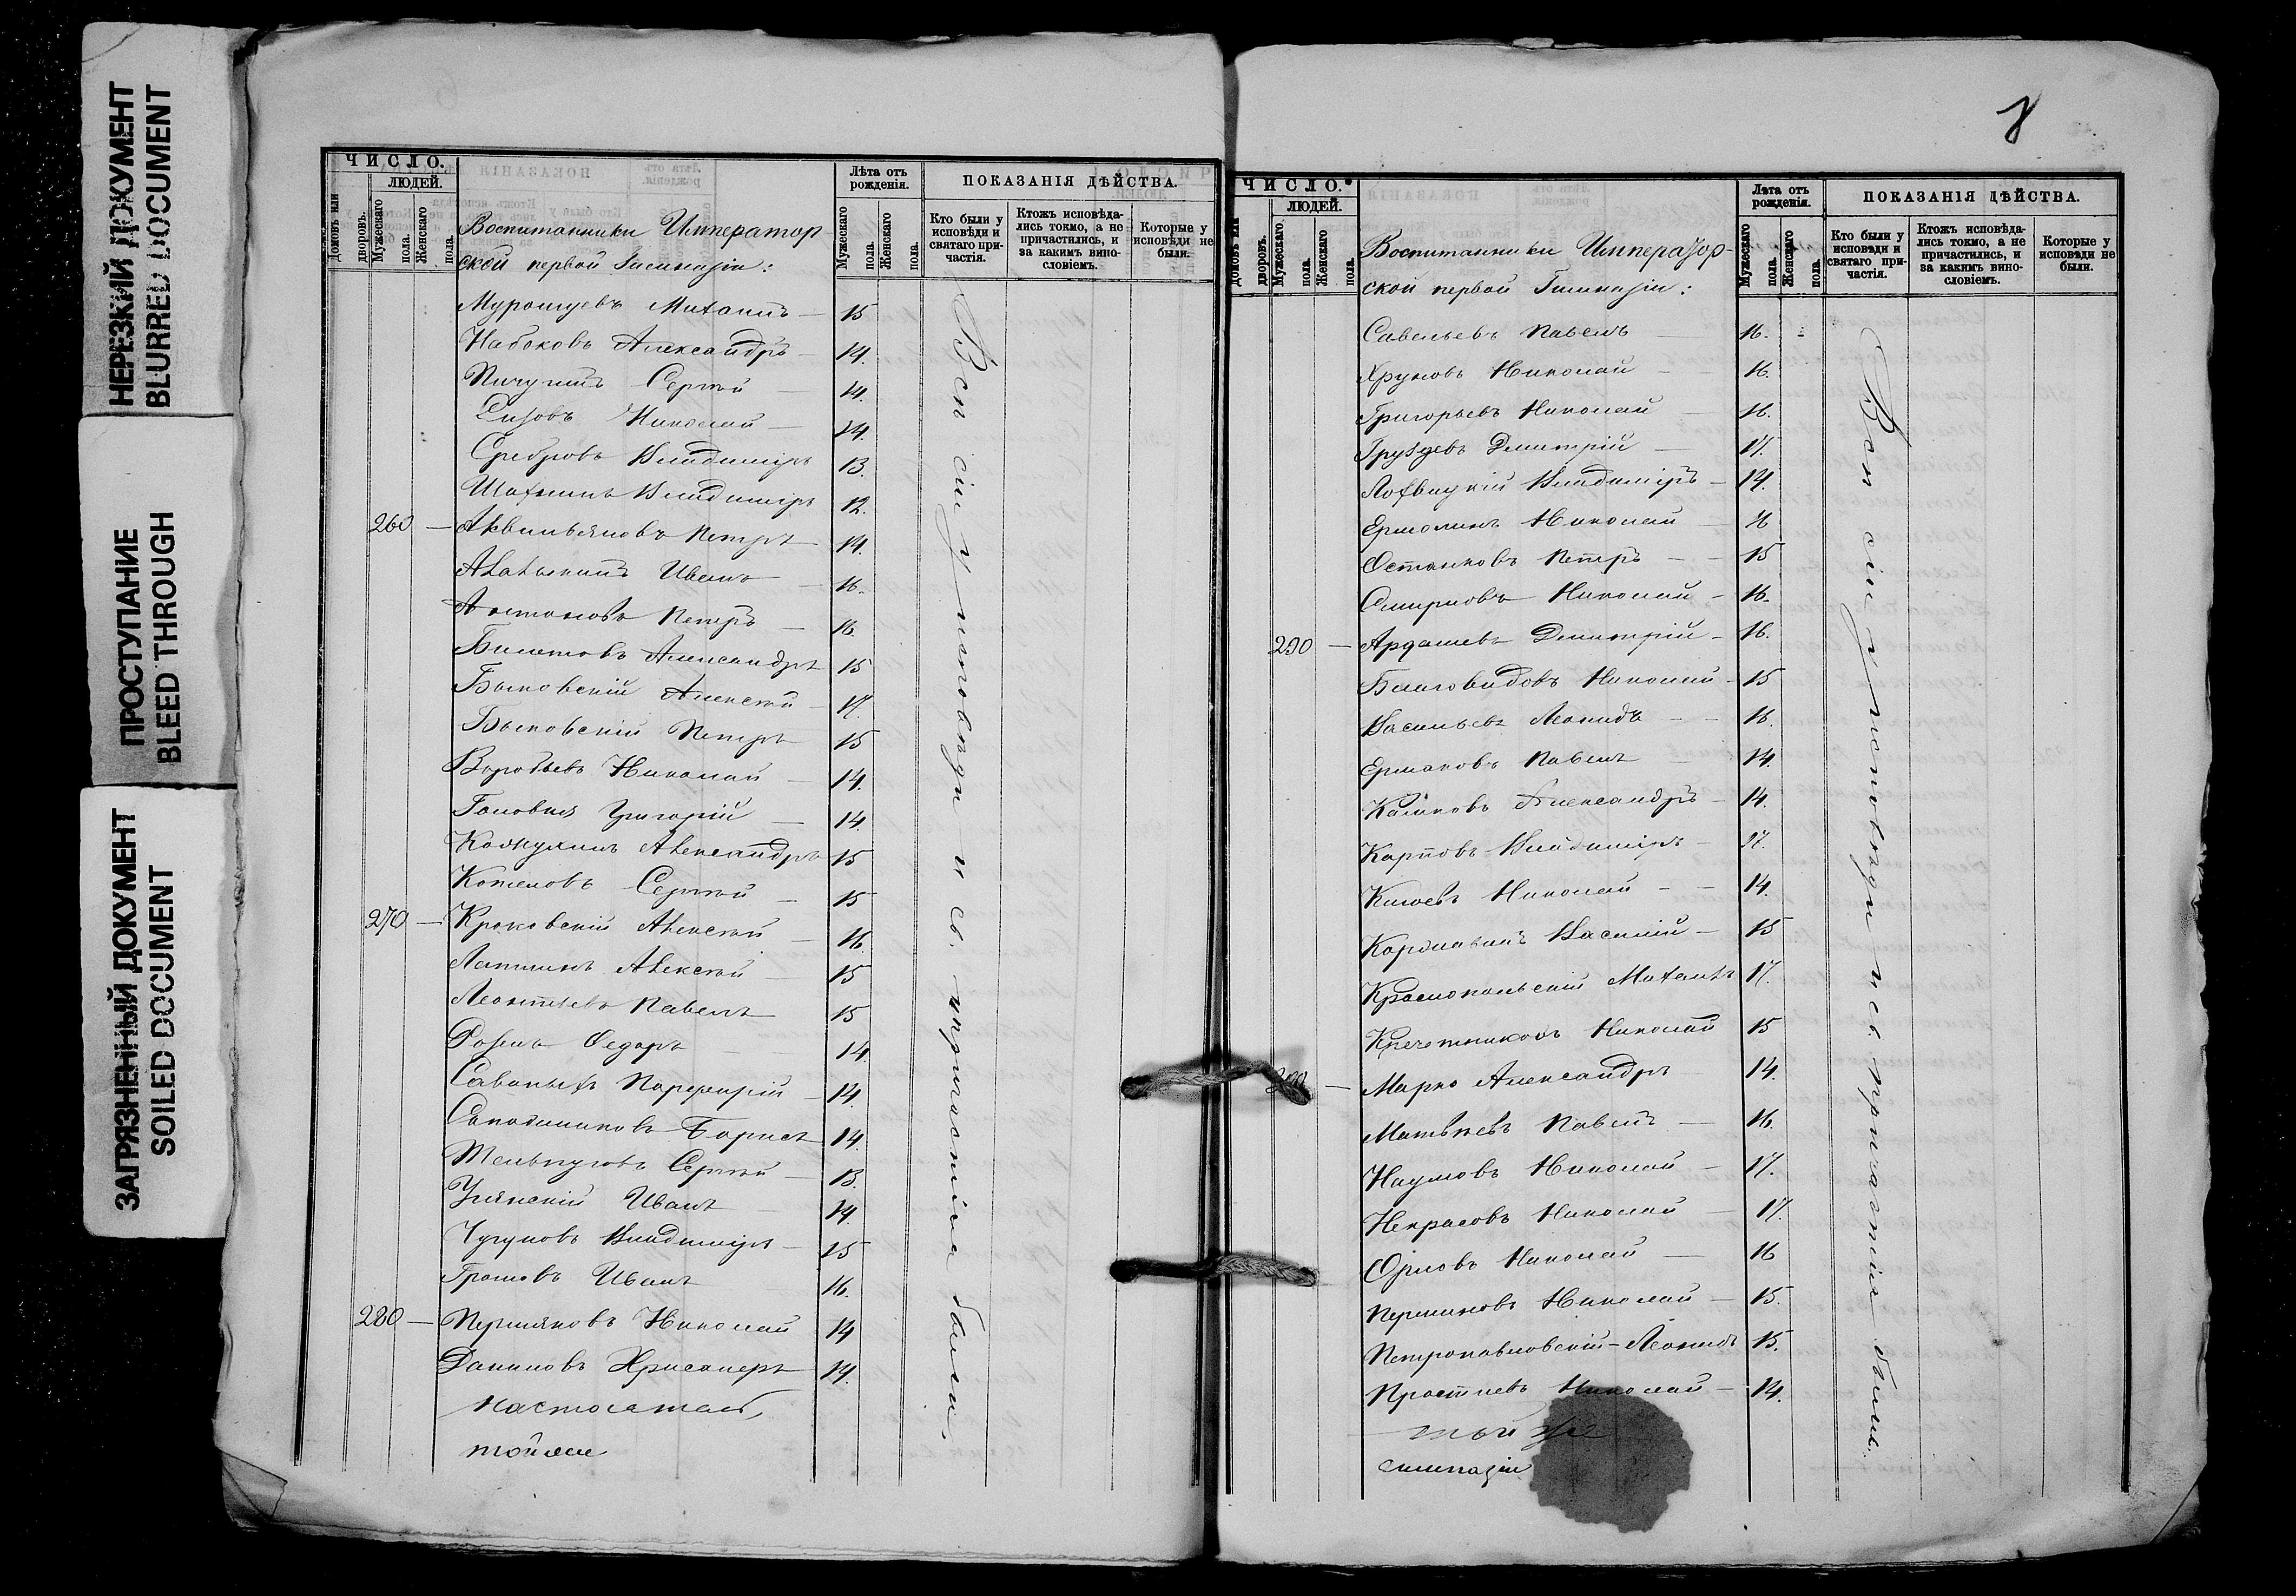 НЕРЕЗКИЙ ДОКУМЕНТ
BLURRED DOCUMENT
ПРОСТУПАНИЕ
BLEED THROUGH
ЗАГРЯЗНЕННЫЙ ДОКУМЕНТ
SOILED DOCUMENT
ЧИСЛО.
ЛЮДЕЙ.
Домовъ или дворовъ.
Мужескаго пола.
Женскаго пола.
Лѣта отъ рожденія.
Мужескаго пола.
Женскаго пола.
ПОКАЗАНІЯ ДѢЙСТВА.
Кто были у исповѣди и святаго причастія.
Ктожъ исповѣдались токмо, а не причастились, и за какимъ винословіемъ.
Которые у исповѣди не были.
Воспитанники Император
ской первой Гимназіи:
Михаилъ — 15
Набоковъ Александръ — 14.
Пичугинъ Сергѣй — 14.
Сизовъ Николай — 14.
Сребровъ Владиміръ 13.
Владиміръ 12.
260 — Аквильяновъ Петръ — 14.
Иванъ — 16.
Антоновъ Петръ — 16.
Билетовъ Александръ 15
Быковскій Алексѣй — 17.
Быковскій Петръ 15
Воробьевъ Николай — 14.
Головня Григорій — 14.
Александръ 15
Котеловъ Сергѣй — 15
270 — Краковскій Алексѣй — 16.
Лаптинъ Алексѣй — 15
Леонтьевъ Павелъ 15
Розенъ Федоръ — 14.
Порфирій — 14.
Сапожниковъ Борисъ 14.
Сергѣй — 13.
Углянскій Иванъ — 14.
Чугуновъ Владиміръ — 15
Громовъ Иванъ 16.
280 — Пермяковъ Николай 14
Даниловъ 14.
Всѣ сіи у исповѣди и св. причастія были.
8
ЧИСЛО.
ЛЮДЕЙ.
Домовъ или дворовъ.
Мужескаго пола.
Женскаго пола.
Лѣта отъ рожденія.
Мужескаго пола.
Женскаго пола.
ПОКАЗАНІЯ ДѢЙСТВА.
Кто были у исповѣди и святаго причастія.
Ктожъ исповѣдались токмо, а не причастились, и за какимъ винословіемъ.
Которые у исповѣди не были.
Воспитанники Император-
ской первой Гимназіи:
Савельевъ Павелъ — 16.
Хруловъ Николай — 16.
Григорьевъ Николай — 16.
Груздевъ Димитрій — 17.
Лохвицкій Владиміръ — 14.
Ермолинъ Николай — 16
Останковъ Петръ — 15
Смирновъ Николай — 16.
290 — Ардашевъ Димитрій — 16.
Благовидовъ Николай — 15
Васильевъ Леонидъ — 16.
Ермаковъ Павелъ — 14.
Калиновъ Александръ — 14.
Карповъ Владиміръ — 17.
Николай — 14.
Василій — 15
Краснопольскій Михаилъ 17.
Кречетниковъ Николай 15
Марко Александръ 14.
Матвѣевъ Павелъ — 16.
Наумовъ Николай — 17.
Некрасовъ Николай — 17.
Орловъ Николай — 16
Перминовъ Николай — 15.
Петропавловскій Леонидъ 15.
Николай — 14.
той же
гимназіи
Всѣ сіи у исповѣди и св. причастія были.